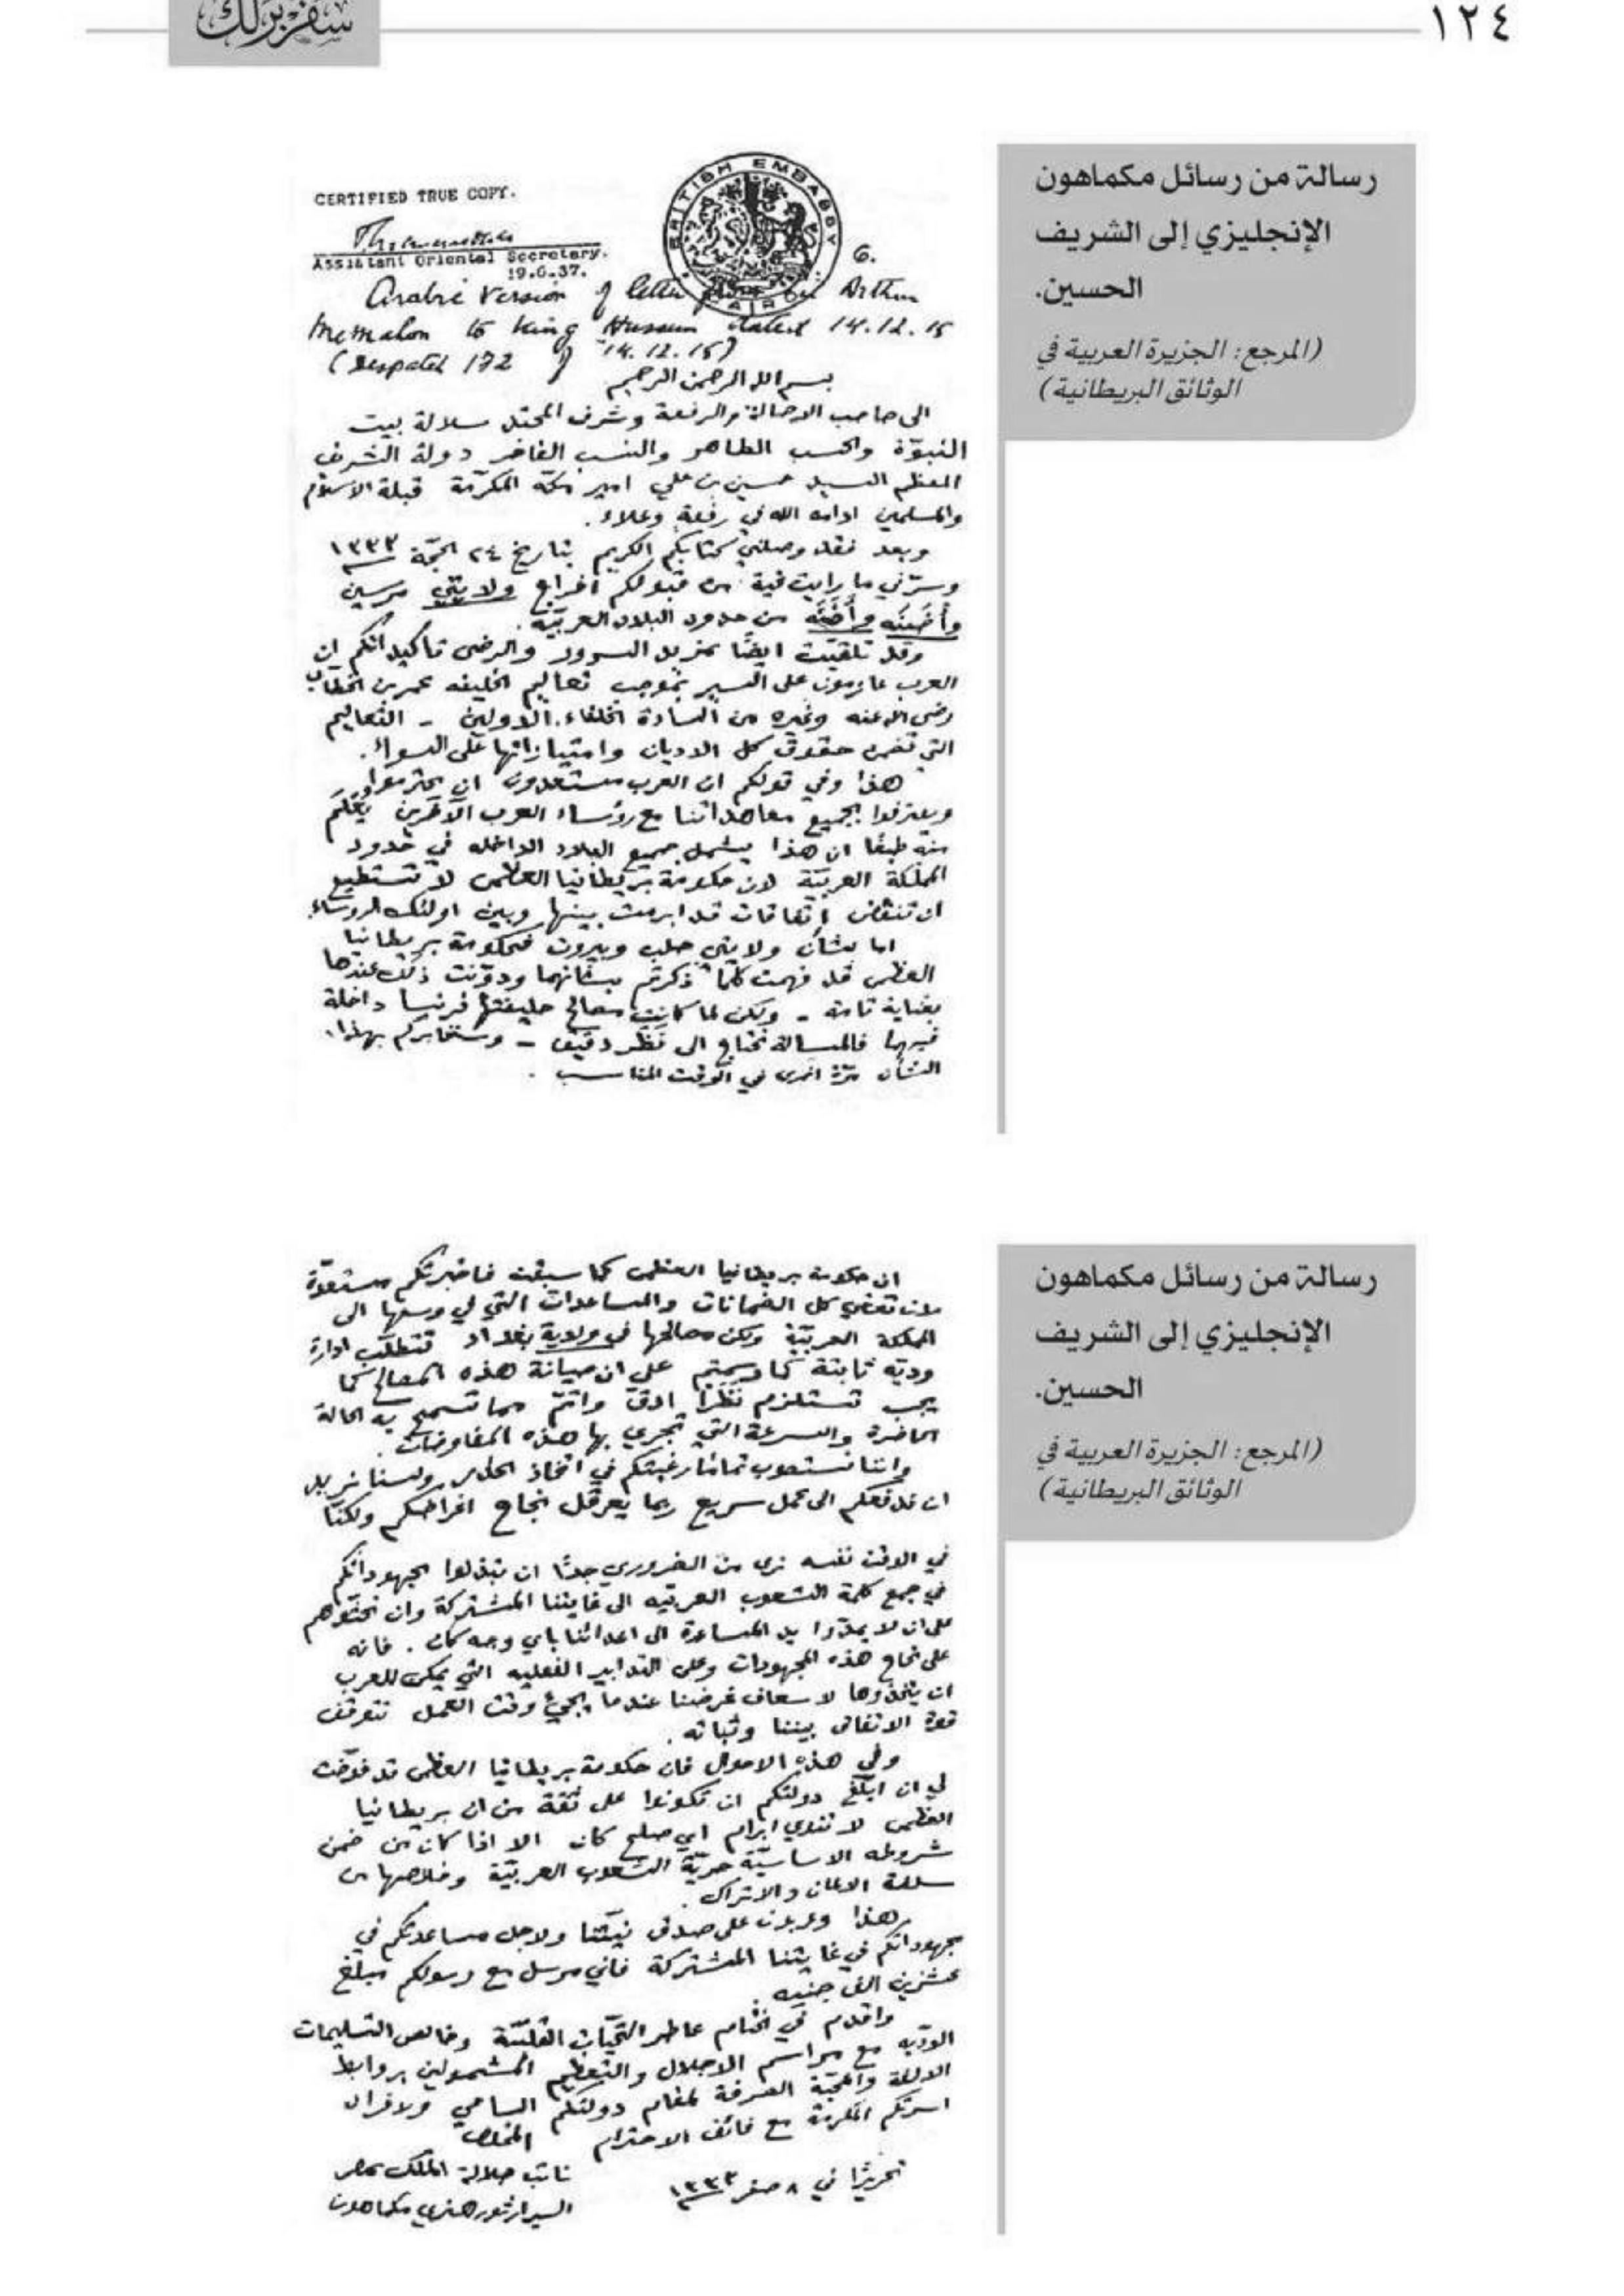 ١٢٤
سفر برلك
رسالة من رسائل مكماهون
الإنجليزي إلى الشريف
الحسين.
(المرجع: الجزيرة العربية في
الوثائق البريطانية)
CERTIFIED TRUE COPY.
Assistant Oriental Secretary.
19.6.37.
BRITISH EMBASSY
CAIRO
6.
Arabic Version of letter from Sir Arthur
McMahon to King Hussein dated 14.12.15
(Despatch 172 of 14.12.15)
بسم الله الرحمن الرحيم
الى صاحب الاصالة والرفعة وشرف المحتد سلالة بيت
النبوّة والحسب الطاهر والنسب الفاخر دولة الشريف
المعظم السيد حسين بن علي امير مكة المكرّمة قبلة الاسلام
والمسلمين ادامه الله في رفعة وعلاء.
وبعد فقد وصلني كتابكم الكريم بتاريخ ٢٤ الحجّة ١٣٣٣
وسرّني ما رايت فية من قبولكم اخراج ولايتي مرسين
وأضَنَه من حدود البلاد العربيّة.
وقد تلقيّت ايضًا بمزيد السرور والرضى تاكيداتكم ان
العرب عازمون على السير بموجب تعاليم الخليفه عمر بن الخطاب
رضي الله عنه وغيره من السادة الخلفاء الاولين - التعاليم
التي تضمن حقوق كل الاديان وامتيازاتها على السواء.
هذا وفي قولكم ان العرب مستعدون ان يحترموا
ويعترفوا بجميع معاهداتنا مع رؤساء العرب الآخرين يُعْلَم
منه طبعًا ان هذا يشمل جميع البلاد الداخله في حدود
المملكة العربيّة لان حكومة بريطانيا العظمى لا تستطيع
ان تنقض اتفاقات قد ابرمت بينها وبين اولئك الروساء.
اما بشأن ولايتي حلب وبيروت فحكومة بريطانيا
العظمى قد فهمت كلما ذكرتم بشانهما ودوّنت ذلك عندها
بعناية تامة - ولكن لما كانت مصالح حليفتها فرنسا داخلة
فيهما فالمسالة تحتاج الى نظر دقيق - وسنخابركم بهذا
الشأن مرّة اخرى في الوقت المناسب .
رسالة من رسائل مكماهون
الإنجليزي إلى الشريف
الحسين.
(المرجع: الجزيرة العربية في
الوثائق البريطانية)
ان حكومة بريطانيا العظمى كما سبقت فاخبرتكم مستعدّة
لان تعطي كل الضمانات والمساعدات التي في وسعها الى
المملكة العربيّة ولكن مصالحها في ولاية بغداد تتطلّب ادارة
وديّه ثابتة كما رسمتم على ان صيانة هذه المصالح كما
يجب تستلزم نظرًا ادقّ واتمّ مما تسمح به الحالة
الحاضرة والسرعة التي تجري بها هذه المفاوضات.
واننا نستصوب تمامًا رغبتكم في اتخاذ الحذر ولسنا نريد
ان ندفعكم الى عمل سريع ربما يعرقل نجاح اغراضكم ولكنّا
في الوقت نفسه نرى من الضروري جدًا ان تبذلوا مجهوداتكم
في جمع كلمة الشعوب العربيّه الى غايتنا المشتركة وان تحثّوهم
على ان لا يمدّوا يد المساعدة الى اعدائنا باي وجه كان . فانه
على نجاح هذه المجهودات وعلى التدابير الفعليه التي يمكن للعرب
ان يتخذوها لاسعاف غرضنا عندما يجيءُ وقت العمل تتوقف
قوة الاتفاق بيننا وثباته.
وفي هذه الاحوال فان حكومة بريطانيا العظمى قد فوّضت
لي ان ابلّغ دولتكم ان تكونوا على ثقة من ان بريطانيا
العظمى لا تنوي ابرام اي صلح كان الا اذا كان من ضمن
شروطه الاساسيّة حريّة الشعوب العربيّة وخلاصها من
سلطة الالمان والاتراك.
هذا وعربون على صدق نيتنا ولاجل مساعدتكم في
مجهوداتكم في غايتنا المشتركة فاني مرسل مع رسولكم مبلغ
عشرين الف جنيه.
واقدم في الختام عاطر التحيّات القلبيّة وخالص التسليمات
الوديّه مع مراسم الاجلال والتعظيم المشمولين بروابط
الالفة والمحبّة الصرفة لمقام دولتكم السامي ولافراد
اسرتكم المكرمة مع فائق الاحترام المخلص
تحريرًا في ٨ صفر ١٣٣٣
نائب جلالة الملك بمصر
السير ارثور هنري مكماهون